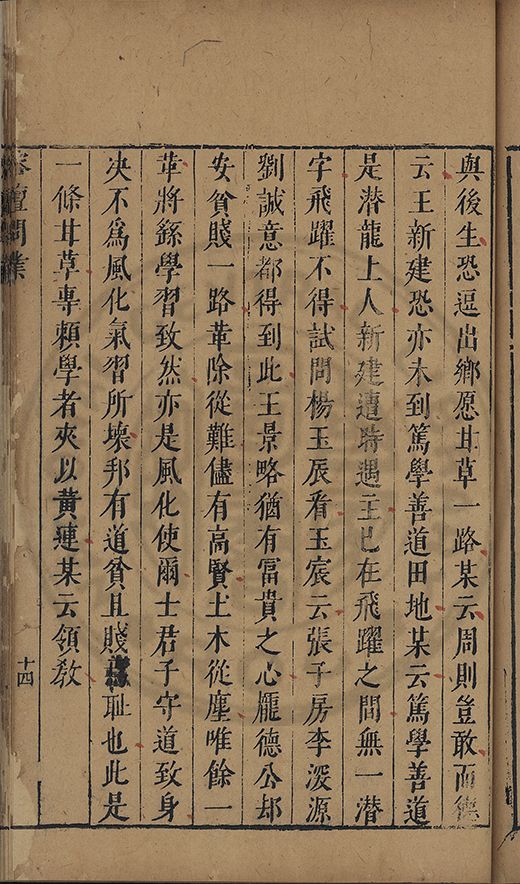 與後生恐逗出鄉愿甘草一路某云周則豈敢而德
云王新建恐亦未到篤學善道田地某云篤學善道
是潛龍上人新建遭時遇主已在飛躍之間無一潛
字飛躍不得試問楊玉辰看玉宸云張子房李深源
劉誠意都得到此王景略猶有富貴之心龐德公却
安貧賤一路革除從難儘有高賢土木從塵唯餘一
革將繇學習致然亦是風化使爾士君子守道致身
决不爲風化氣習所壞邦有道貧且賤 耻也此是
一條甘草專賴學者夾以黃連某云領敎
榕壇問業
十四